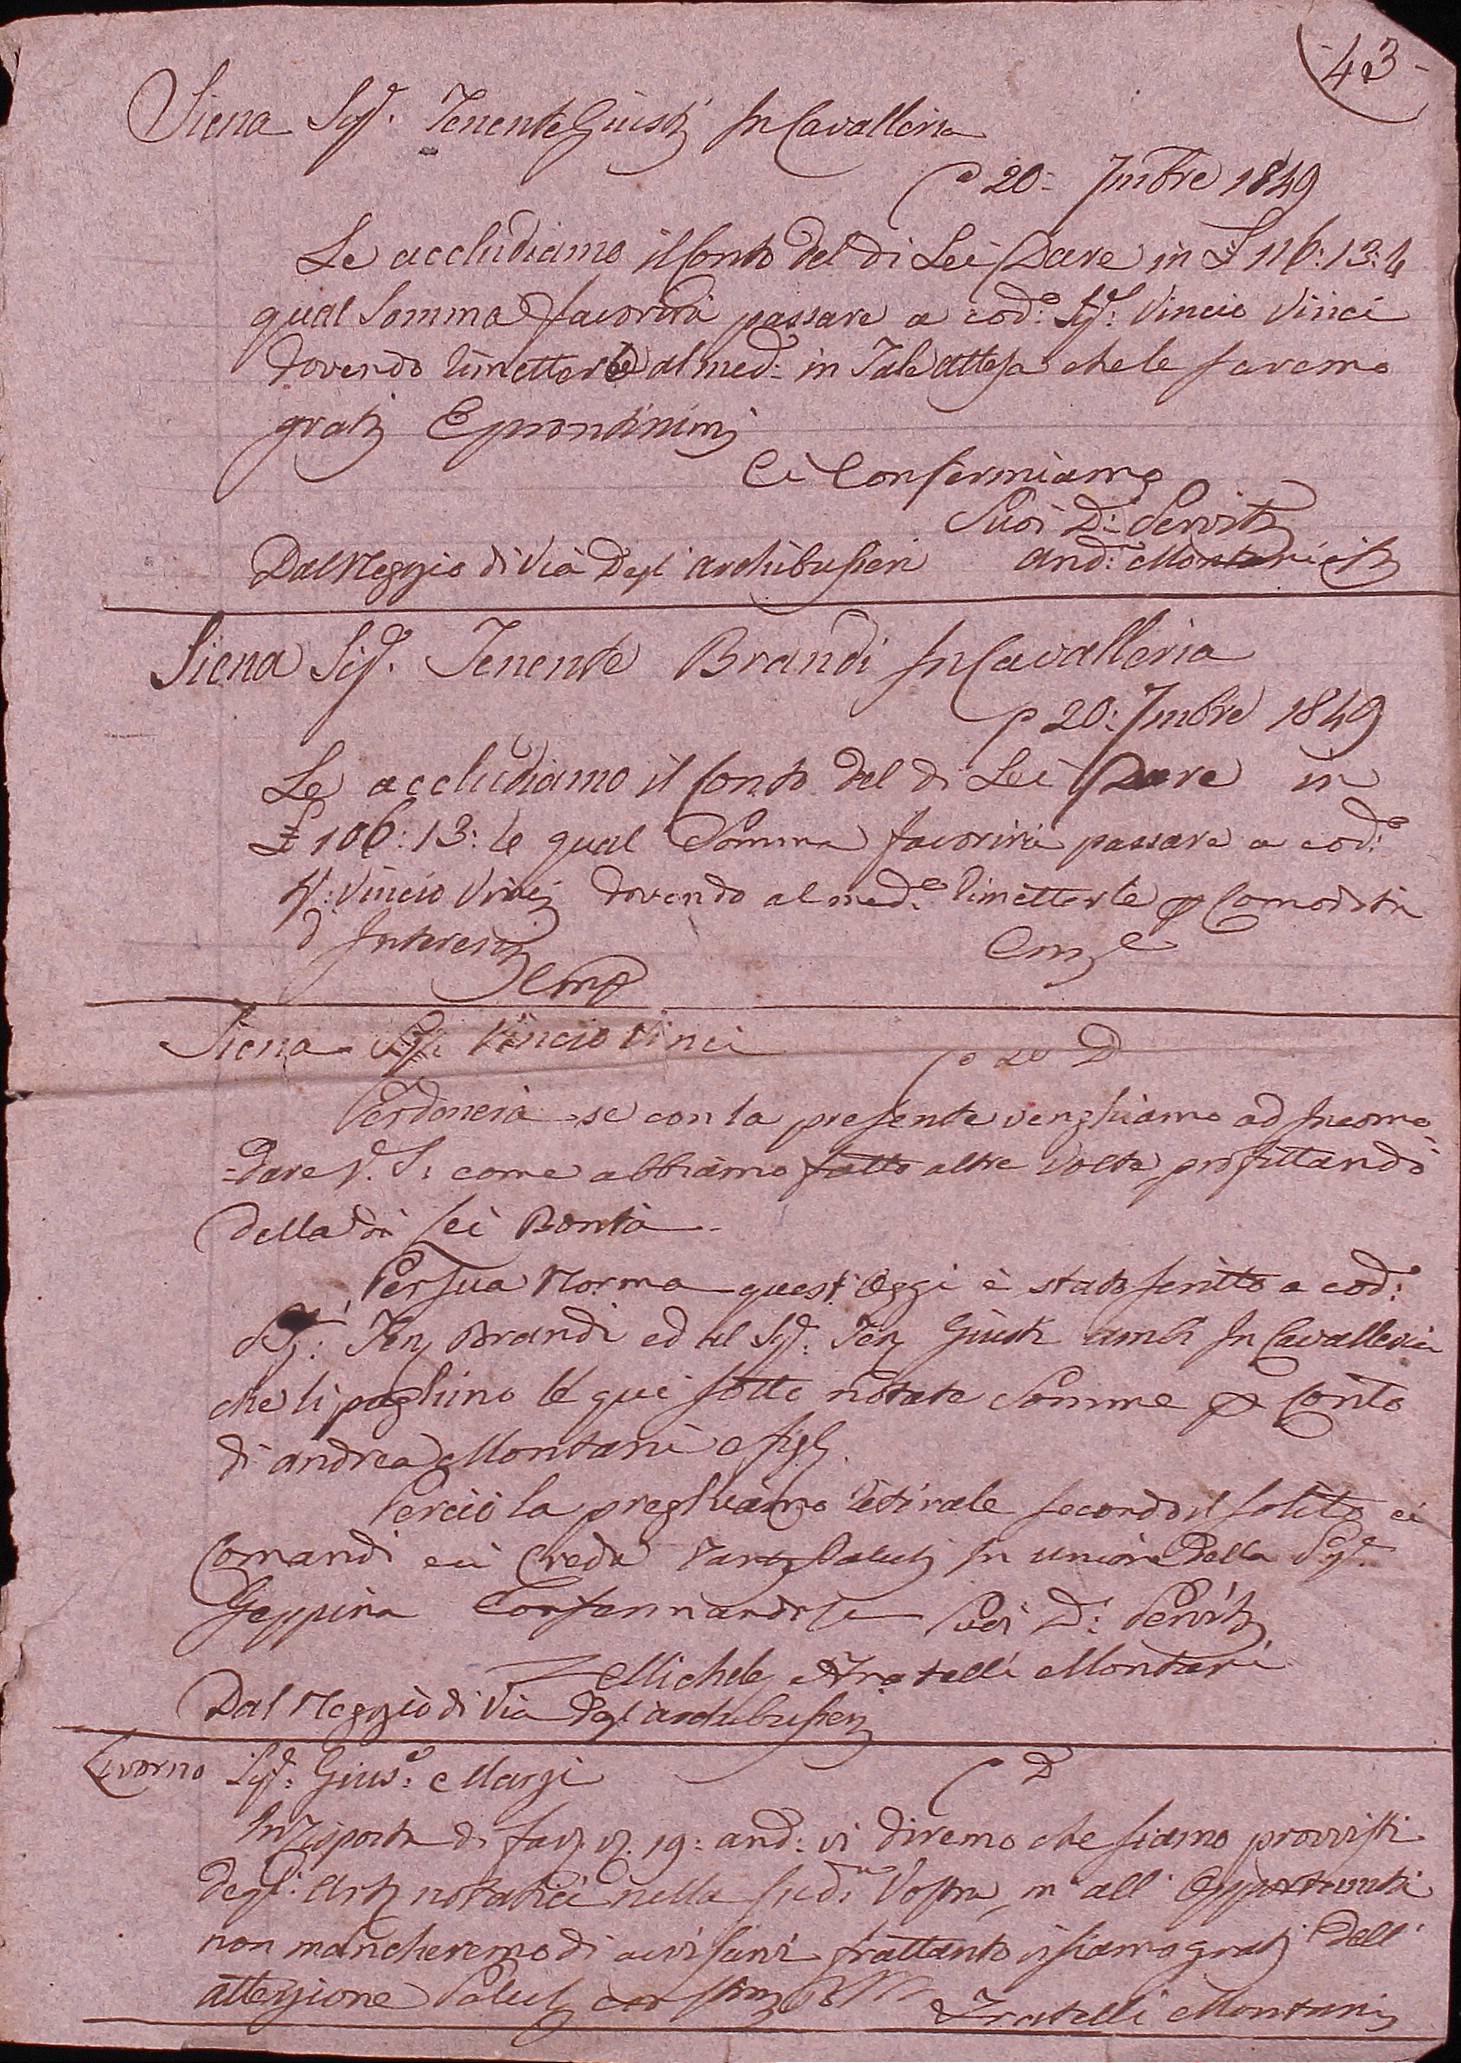 43
Siena Sig.r Tenente Giusti In Cavalleria
20: 7mbre 1849
Le accludiamo il Conto del di Lei Dare in £ 116:13:4
qual Somma favorirà passare a cod.o Sig.r Vincio Vinci
dovendo rimetterle al med.o in Tale attesa che le saremo
grati E prontissimi
Ci Confermiamo
Suoi D.i Servit.i
Dal Neggio di Via Degl' archibusieri And.a Montari e fi
Siena Sig.r Tenente Brandi In Cavalleria
20: 7mbre 1849
Le accludiamo il Conto del di Lei Dare in
£ 106:13:4 qual Somma favorirà passare a cod.o
Sr: Vincio Vinci dovendo al med.o rimetterle p Comodità
d' Interessi
Siena Sig.r Vincio Vinci 20 D
Perdonerà se con la presente venghiamo ad Incomo
=dare V. S: come abbiamo fatto altre Volte, profittando
della di Lei Bontà
Per sua Norma quest' Oggi è stato scritto a cod.o
Sig.r Ten Brandi ed al Sig.r Ten Giusti ambi In Cavalleria
che li paghino le qui sotto notate Somme p Conto
di andrea Montari e figli
Perciò la preghiamo ritirale secondo il Solito ci
Comandi e ci Creda Tanti Saluti In unione Della Sig.ra
Geppina Confermandosi Suoi D.i Servit.i
Michele e Fratelli Montari
Dal Neggio di Via Degl' archibusieri
Livorno Sig.r Gius.e Margi D
In risposta d. fav. 19: and: vi diremo che siamo provvisti
degl' Art. notatici nella sud.a Vostra, all' Opportunità
non mancheremo di avvisarvi frattanto vi siamo grati dell'
attenzione Saluti
Fratelli Montari